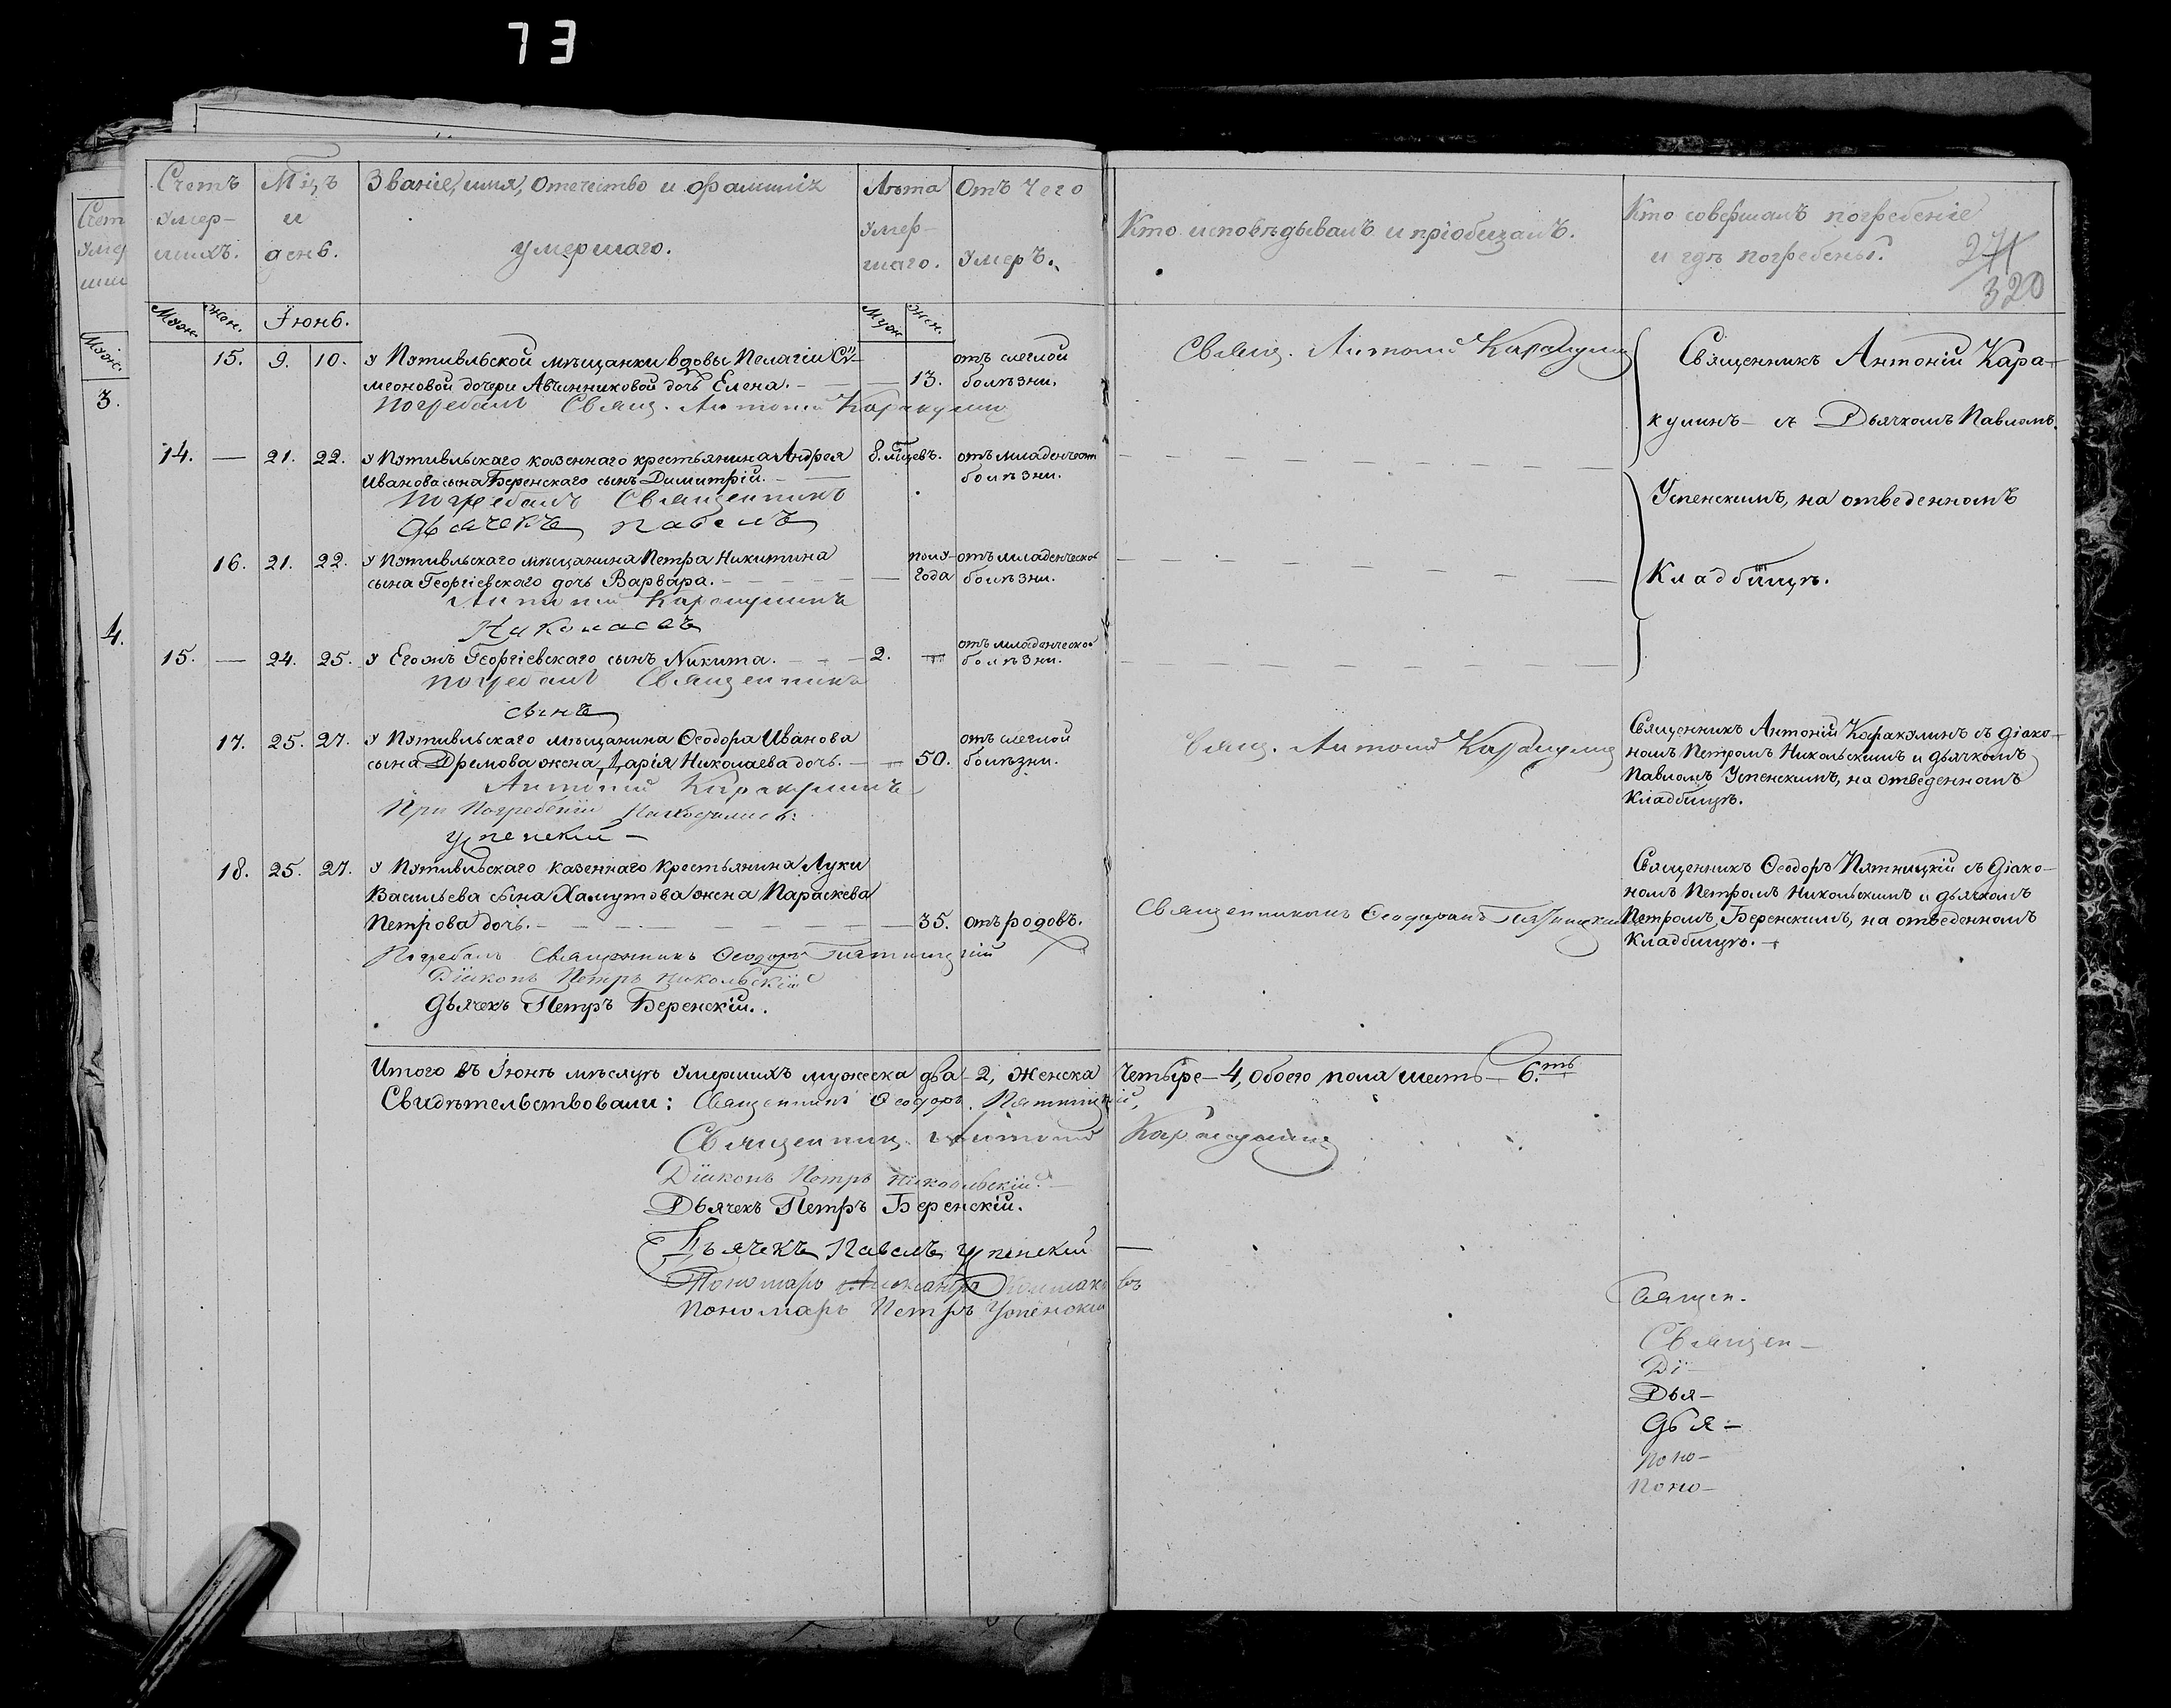 73
Счетъ умер- шихъ.
Мѣц. и день.
Званіе, имя, отечество и фамилія умершаго.
Лѣта умер- шаго.
Отъ чего умеръ.
Кто исповѣдывалъ и пріобщалъ.
Кто совершалъ погребеніе и гдѣ погребены.
271
320
Муж. Жен. Іюнь. Муж. Жен.
3.
4.
15. 9. 10. У Путивльской мѣщанки вдовы Пелагіи Си-
меоновой дочери Авчинниковой дочь Елена. — 13. отъ слеглой болѣзни.
Погребалъ Свящ. Антоній Каракулинъ
Свящ. Антоній Каракулинъ
Священникъ Антоній Кара-
кулинъ съ Дьячкомъ Павломъ
Успенскимъ, на отведенномъ
Кладбищѣ.
14. — 21. 22. У Путивльскаго казеннаго крестьянина Андрея 8. мѣцевъ. отъ младенческой
Иванова сына Беренскаго сынъ Димитрій. — болѣзни.
Погребалъ Священникъ
Дьячекъ Павелъ
16. 21. 22. У Путивльскаго мѣщанина Петра Никитина полу- отъ младенческой
сына Георгіевскаго дочь Варвара. — года болѣзни.
Антоній Каракулинъ
Николаевъ
15. — 24. 25. У Егожъ Георгіевскаго сынъ Никита. — 2. — отъ младенческой болѣзни.
Погребалъ Священникъ
сынъ
17. 25. 27. У Путивльскаго мѣщанина Ѳеодора Иванова отъ слеглой
сына Дремова жена Дарія Николаева дочь. — 50. болѣзни.
Антоній Каракулинъ
При Погребеніи находились:
Успенскій —
Свящ. Антоній Каракулинъ
Священникъ Антоній Каракулинъ съ діако-
номъ Петромъ Никольскимъ и дьячкомъ
Павломъ Успенскимъ, на отведенномъ
Кладбищѣ.
18. 25. 27. У Путивльскаго казеннаго крестьянина Луки
Васильева сына Хамутова жена Параскева
Петрова дочь. — 35. отъ родовъ.
Погребалъ Священникъ Ѳеодоръ Пятницкій
Діяконъ Петръ Никольскій
Дьячекъ Петръ Беренскій.
Священникомъ Ѳеодоромъ Пятницкимъ
Священникъ Ѳеодоръ Пятницкій съ діако-
номъ Петромъ Никольскимъ и дьячкомъ
Петромъ Беренскимъ, на отведенномъ
Кладбищѣ.
Итого въ Іюнѣ мѣсяцѣ умершихъ мужеска два — 2, женска четыре — 4, обоего пола шесть — 6.ть
Свидѣтельствовали: Священникъ Ѳеодоръ Пятницкій,
Священникъ Антоній Каракулинъ
Діяконъ Петръ Никольскій.
Дьячекъ Петръ Беренскій.
Дьячекъ Павелъ Успенскій —
Пономарь Александръ
Пономарь Петръ Успенскій
Священ.
Священ —
Ді —
Дья —
Дья —
Поно —
Поно —